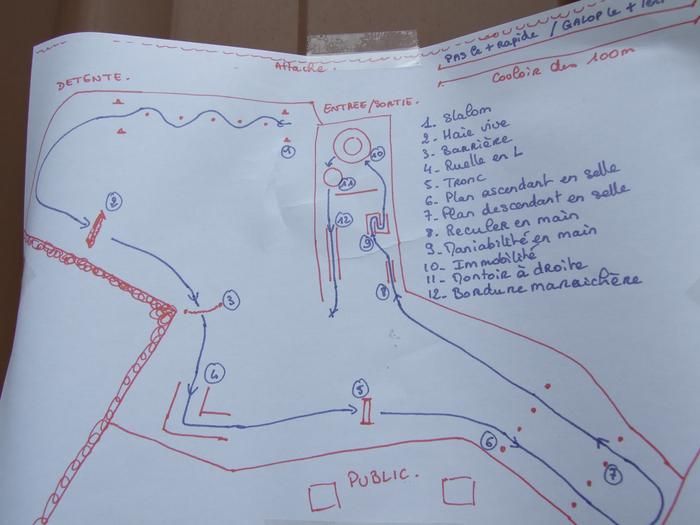 PAS le + Rapide / GALOP le + lent
Couloir des 100m
Attache
DETENTE.
ENTREE/SORTIE.
1. Slalom
2. Haie vive
3. Barrière
4. Ruelle en L
5. Tronc
6. Plan ascendant en selle
7. Plan descendant en selle
8. Reculer en main
9. Maniabilité en main
10. Immobilité
11. Montoir à droite
12. Bordure maraîchère
1
2
3
4
5
6
7
8
9
10
11
12
PUBLIC.